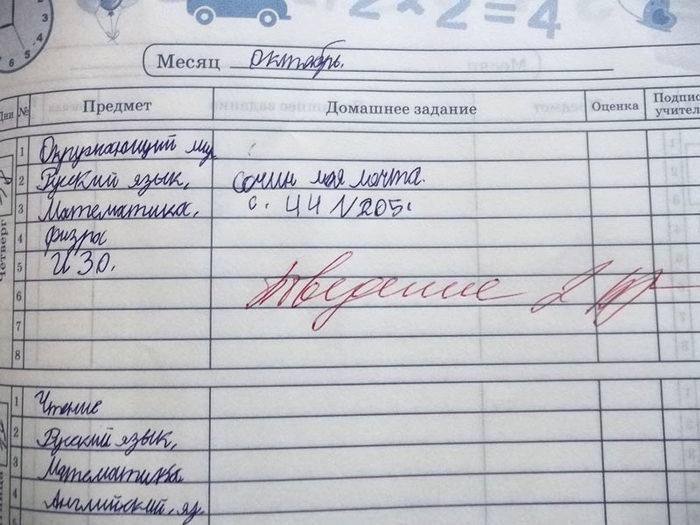 2 × 2 = 4
Месяц Октябрь.
Дни № Предмет Домашнее задание Оценка Подпис учител
1 Окружающий ми
2 Русский язык, сочин моя мечта.
3 Математика, с. 44 №205.
4 физра
5 ИЗО.
6 Поведение 2
7
8
Четверг
1 Чтение
2 Русский язык,
3 Математика
4 Английский яз.